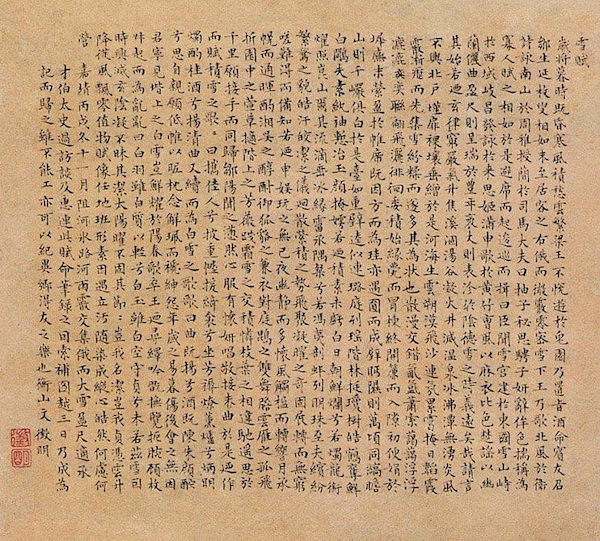 雪賦
歲將暮時既昏寒風積愁雲繁梁王不悅遊於兔園乃置旨酒命賓友召
鄒生延枚叟相如末至居客之右俄而微霰零密雪下王乃歌北風於衛
詩詠南山於周雅授簡於司馬大夫曰抽子秘思騁子妍辭侔色揣稱為
寡人賦之相如於是避席而起逡巡而揖曰臣聞雪宮建於東國雪山峙
於西域岐昌發詠於來思姬滿申歌於黃竹曹風以麻衣比色楚謠以幽
蘭儷曲盈尺則呈瑞於豐年袤丈則表沴於陰德雪之時義遠矣哉請言
其始若迺玄律窮嚴氣升焦溪涸湯谷凝火井滅溫泉冰沸潭無湧炎風
不興北戶墐扉裸壤垂繒於是河海生雲朔漠飛沙連氛累靄掩日韜霞
霰淅瀝而先集雪紛糅而遂多其為狀也散漫交錯氛氳蕭索藹藹浮浮
瀌瀌奕奕聯翩飛灑徘徊委積始緣甍而冒棟終開簾而入隙初便娟於
墀廡末縈盈於帷席既因方而為珪亦遇圓而成璧眄隰則萬頃同縞瞻
山則千巖俱白於是臺如重璧逵似連璐庭列瑤階林挺瓊樹皓鶴奪鮮
白鷴失素紈袖慙冶玉顏掩嫮若迺積素未虧白日朝鮮爛兮若燭龍銜
燿照崑山爾其流滴垂冰緣霤承隅粲兮若馮夷剖蚌列明珠至夫繽紛
繁騖之貌皓皔皦潔之儀迴散縈積之勢飛聚凝曜之奇固展轉而無窮
嗟難得而備知若迺申娛玩之無已夜幽靜而多懷風觸楹而轉響月承
幌而通暉酌湘吳之醇酎御狐貉之兼衣對庭鵾之雙舞瞻雲雁之孤飛
折園中之萱草摘階上之芳薇踐霜雪之交積憐枝葉之相違馳遙思於
千里願接手而同歸鄒陽聞之懣然心服有懷妍唱敬接末曲於是迺作
而賦積雪之歌曰攜佳人兮披重幄援綺衾兮坐芳縟燎薰爐兮炳明
燭酌桂酒兮揚清曲又續而為白雪之歌歌曰曲既揚兮酒既陳朱顏酡
兮思自親願低帷以昵枕念解珮而褫紳怨年歲之易暮傷後會之無因
君寧見階上之白雪豈鮮耀於陽春歌卒王迺尋繹吟翫撫覽扼腕顧枚
叔起而為亂亂曰白羽雖白質以輕兮白玉雖白空守貞兮未若茲雪因
時興滅玄陰凝不昧其潔太陽曜不固其節節豈我名潔豈我貞憑雲升
降從風飄零值物賦像任地班形素因遇立汚隨染成縱心皓然何慮何
營 嘉靖丙戌冬十一月阻河冰潞河西霰交集俄而大雪盈尺適承
才伯太史過訪談及惠連此賦命筆錄之因索補圖越三日乃成為
記而歸之雖不能工亦可以紀異鄉得友之樂也衡山文徵明